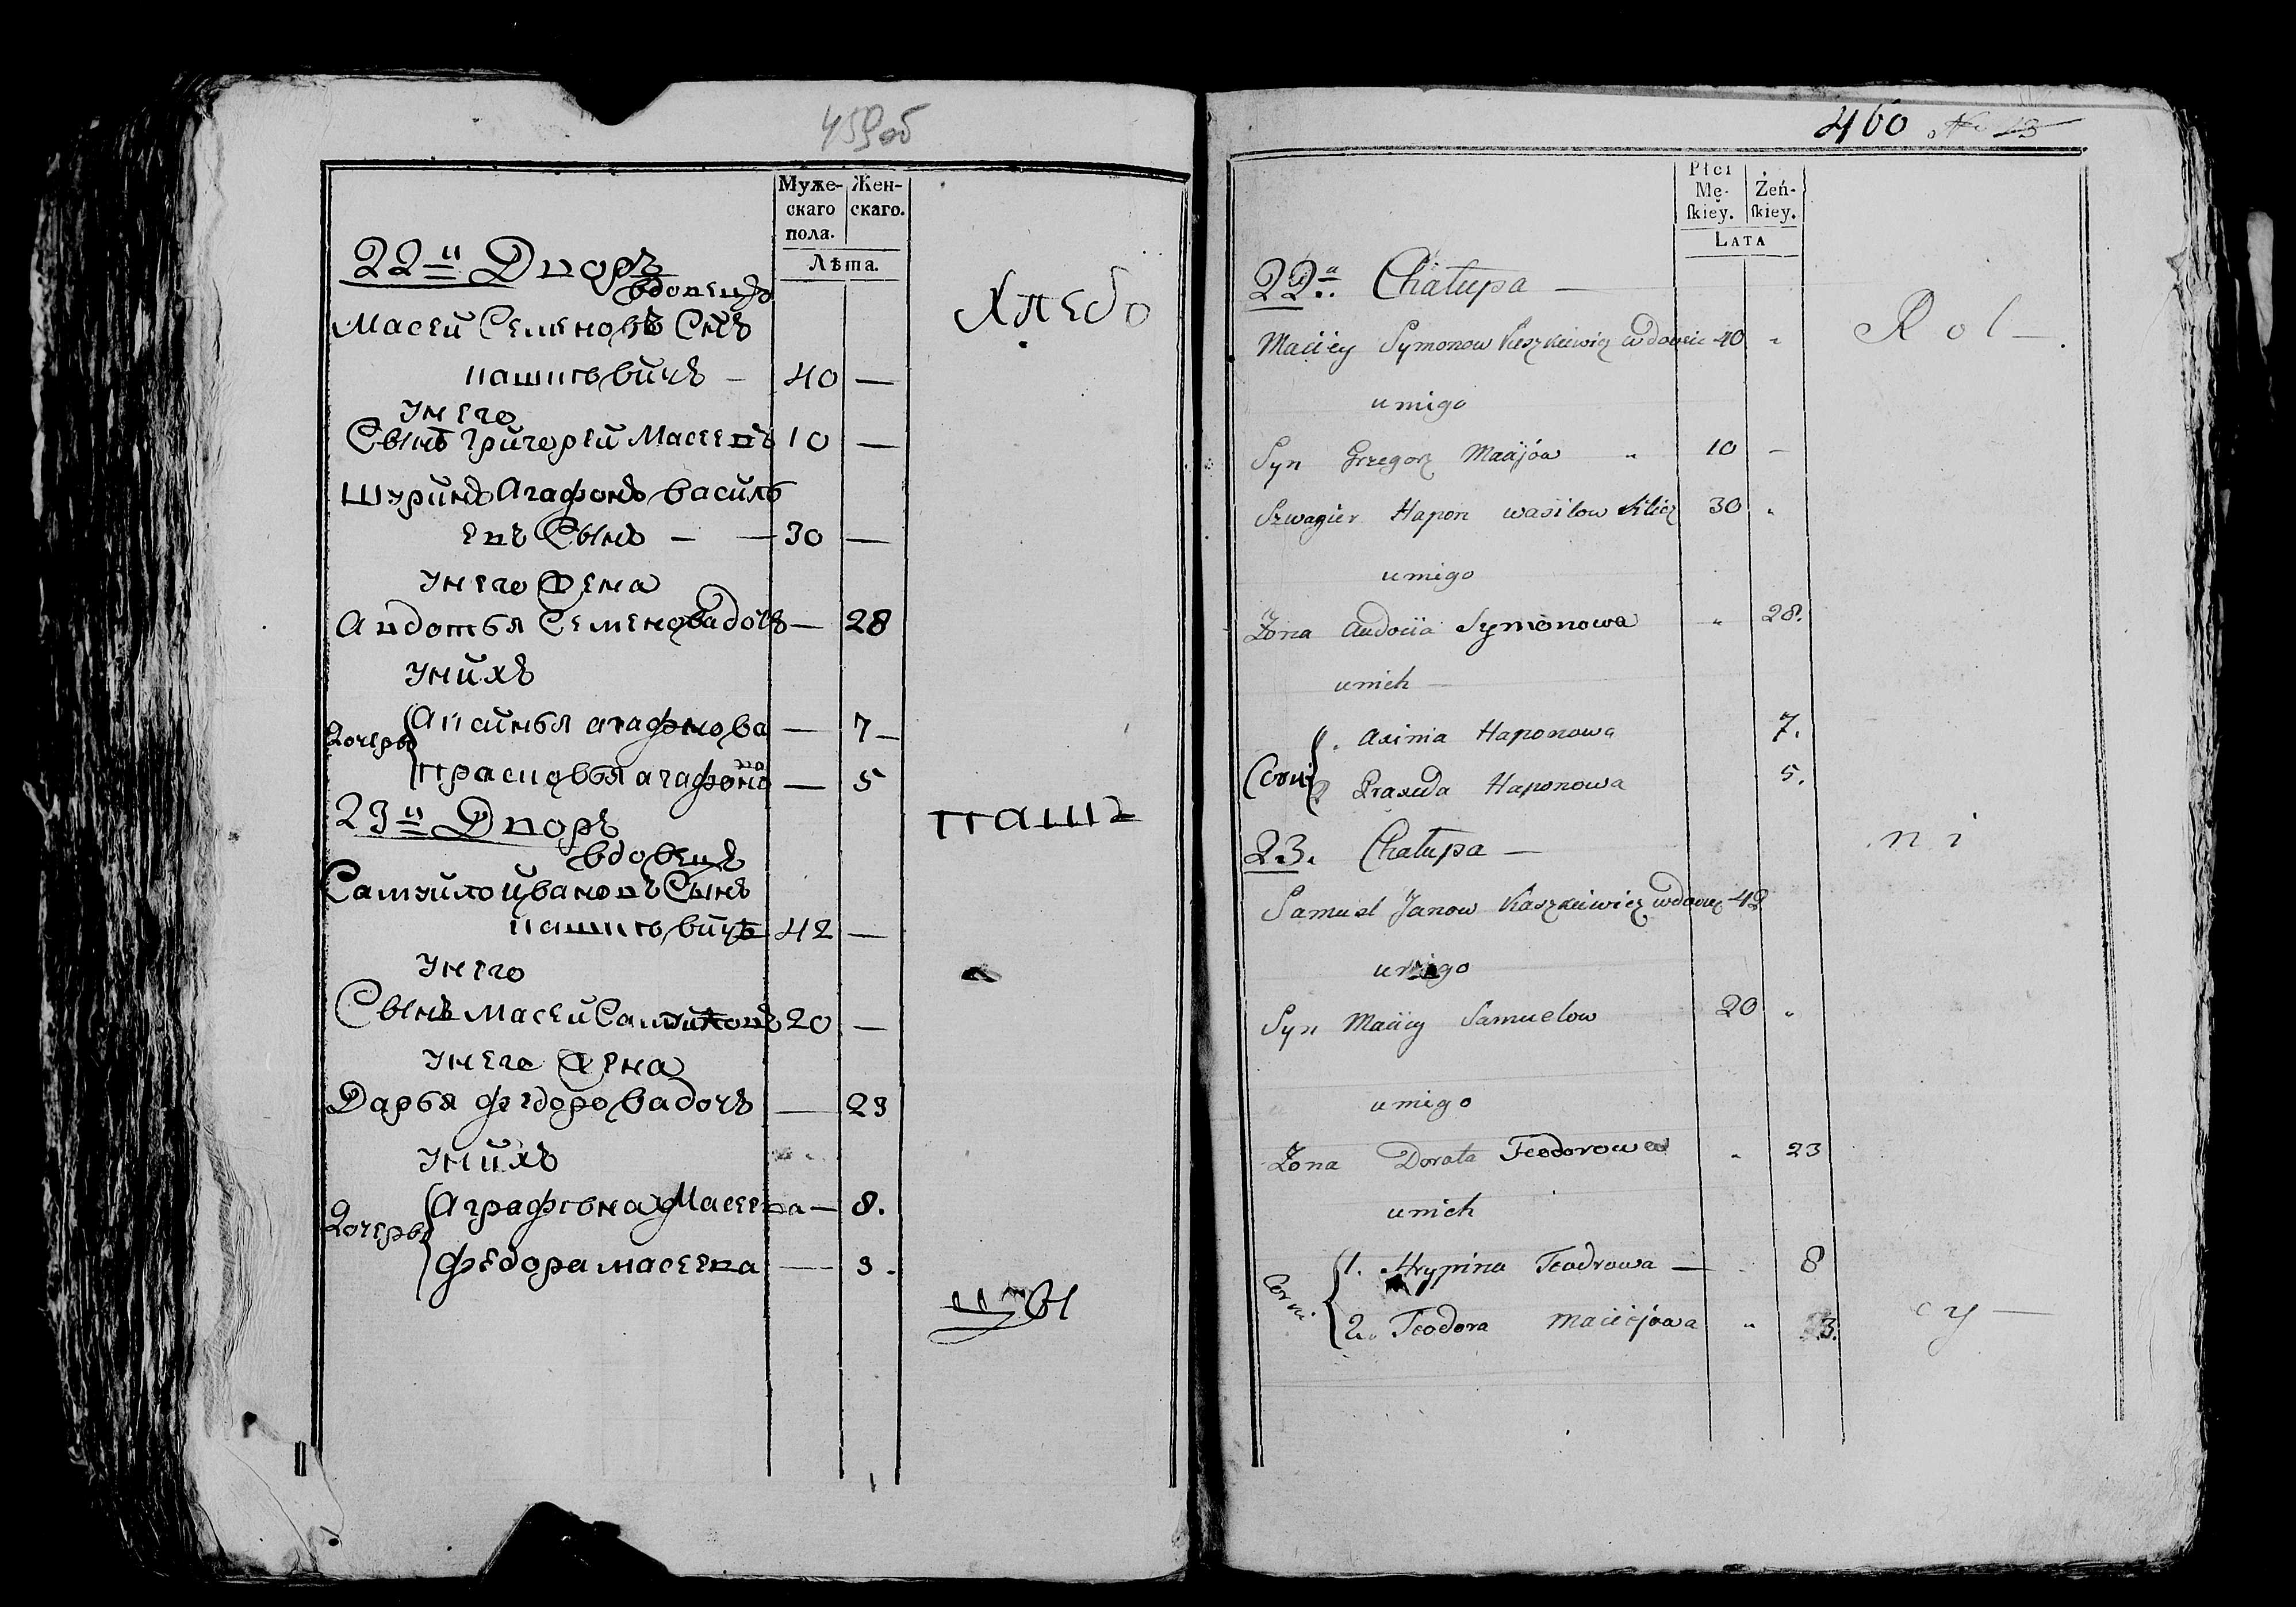 459об
Муже-
скаго
пола.
Жен-
скаго.
Лѣта.
22й Дворъ
вдовецъ
Масей Семеновъ Снъ
кашкевичъ — 40 —
Унего
Сынъ григорей Масеевъ 10 —
Шуринъ Агафонъ василь
евъ Сынъ — — 30 —
Унего жена
Авдотья Семенова дочь — 28
Унихъ
дочерьи
Аксинья агафонова — 7 —
прасковья агафоно
ва — 5
23й Дворъ
вдовецъ
Самуйло Ивановъ Сынъ
кашкевичъ 42 —
Унего
Сынъ Масей Самуйловъ 20 —
Унего жена
Дарья федорова дочь — 23
Унихъ
дочерьи
Аграфена Масеева — 8.
федора масеева — 3.
Хлебо
паш
цы
460 No 13
Płci
Mę-
skiey.
Żeń-
skiey.
LATA
22a. Chałupa —
Maciey Symonow Kaszkiewicz wdowiec 40 "
u niego
Syn Grzegorz Macijów " 10 —
Szwagier Hapon wasilow 30 "
u niego
Żona Audocija Symonowa " 28.
u nich —
Corki
1. Axinia Haponowa 7.
2 Praxeda Haponowa 5.
23. Chałupa —
Samuel Janow Kaszkiewicz wdowiec 42
u niego
Syn Maciey Samuelow 20 "
u niego
Żona Dorata Teodorowa " 23
u nich
Corki
1. Hrypina Teodrowa — 8
2. Teodora Maciejówa " 3.
Rol —
ni
cy —